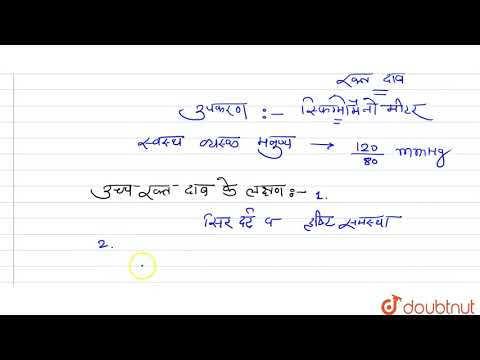 रक्त दाब
उपकरण :- स्फिग्मोमैनोमीटर
स्वस्थ व्यस्क मनुष्य → 120/80 mmHg
उच्च रक्त दाब के लक्षण :- 1.
सिर दर्द व दृष्टि समस्या
2.
doubtnut